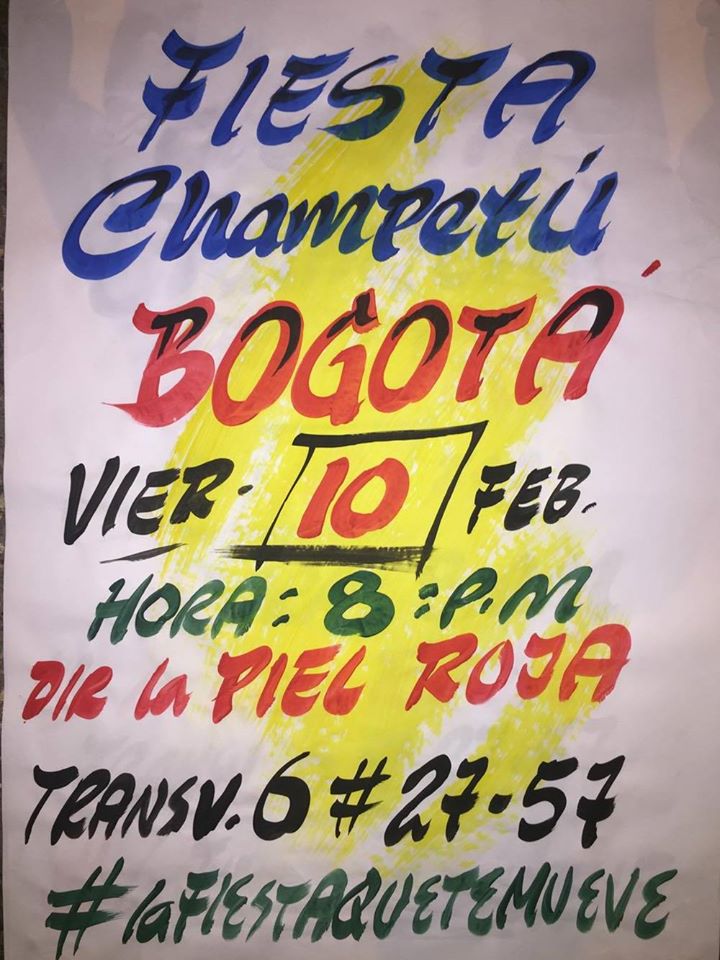 FIESTA
Champetú
BOGOTÁ
VIER. 10 FEB.
HORA: 8:P.M
DIR la PIEL ROJA
TRANSV. 6 # 27-57
#laFIESTAQUETEMUEVE